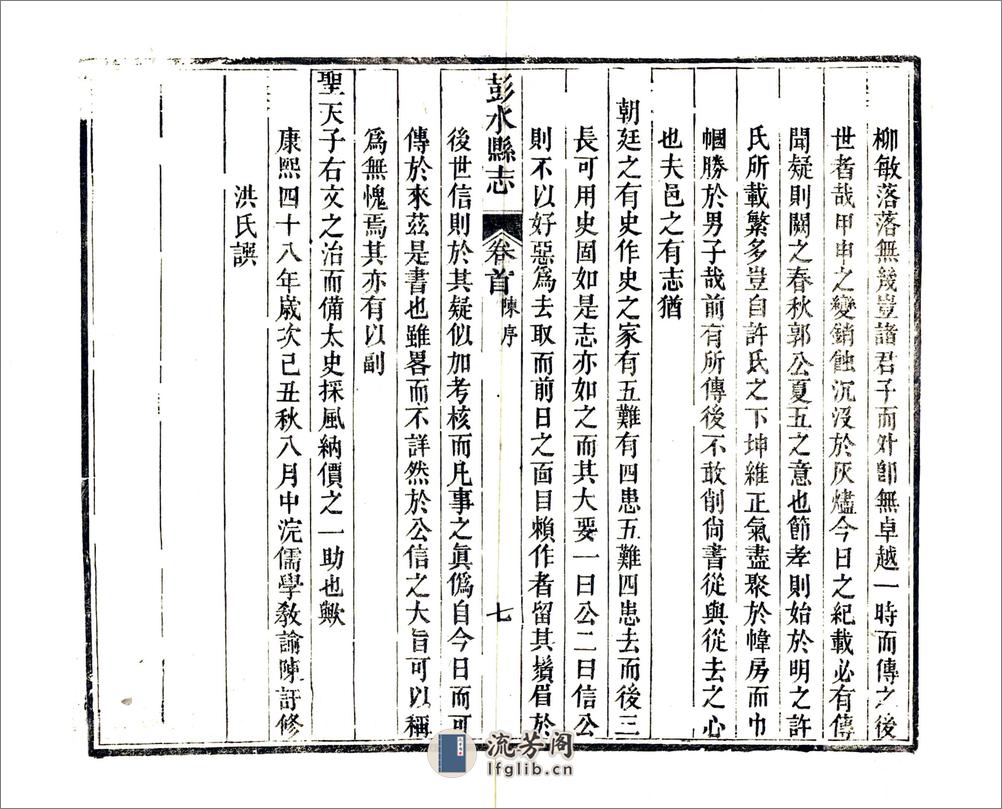 柳敏落落無幾豈諸君子而外卽無卓越一時而傳之後
世者哉甲申之變銷蝕沉沒於灰燼今日之紀載必有傳
聞疑則闕之春秋郭公夏五之意也節孝則始於明之許
氏所載繁多豈自許氏之下坤維正氣盡聚於幃房而巾
幗勝於男子哉前有所傳後不敢削尙書從與從去之心
也夫邑之有志猶
朝廷之有史作史之家有五難有四患五難四患去而後三
長可用史固如是志亦如之而其大要一曰公二曰信公
則不以好惡爲去取而前日之面目賴作者留其鬚眉於
彭水縣志 卷首 陳序 七
後世信則於其疑似加考核而凡事之眞僞自今日而可
傳於來茲是書也雖畧而不詳然於公信之大旨可以稱
爲無愧焉其亦有以副
聖天子右文之治而備太史採風納價之一助也歟
康熙四十八年歲次己丑秋八月中浣儒學敎諭陳訏修
洪氏譔
流芳阁
lfglib.cn